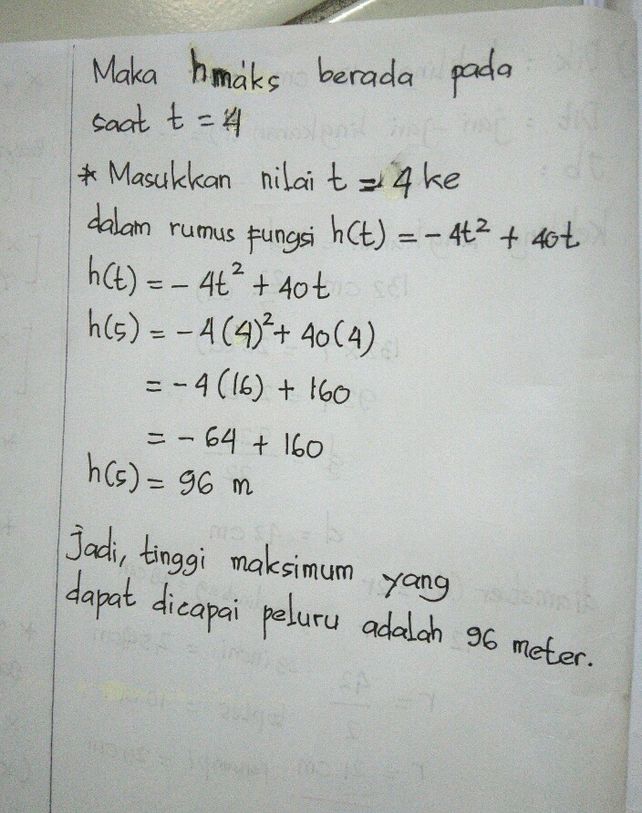 Maka hmaks berada pada
saat t = 4
* Masukkan nilai t = 4 ke
dalam rumus fungsi h(t) = - 4t² + 40t
h(t) = - 4t² + 40t
h(5) = - 4(4)² + 40(4)
= - 4(16) + 160
= - 64 + 160
h(5) = 96 m
Jadi, tinggi maksimum yang
dapat dicapai peluru adalah 96 meter.